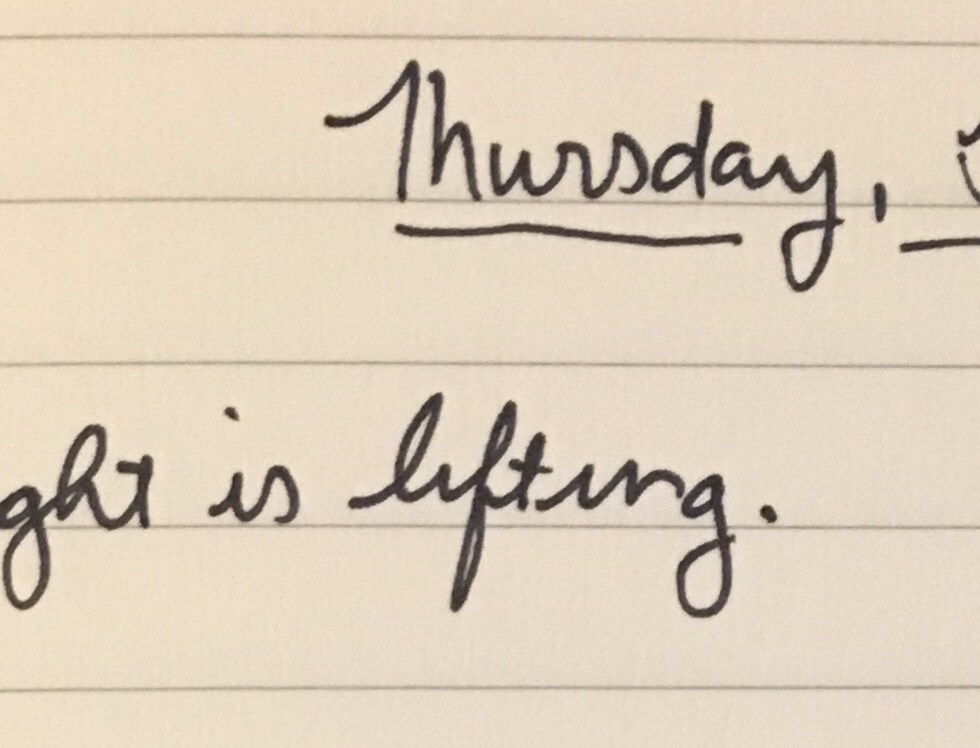 Thursday,
ght is lifting.